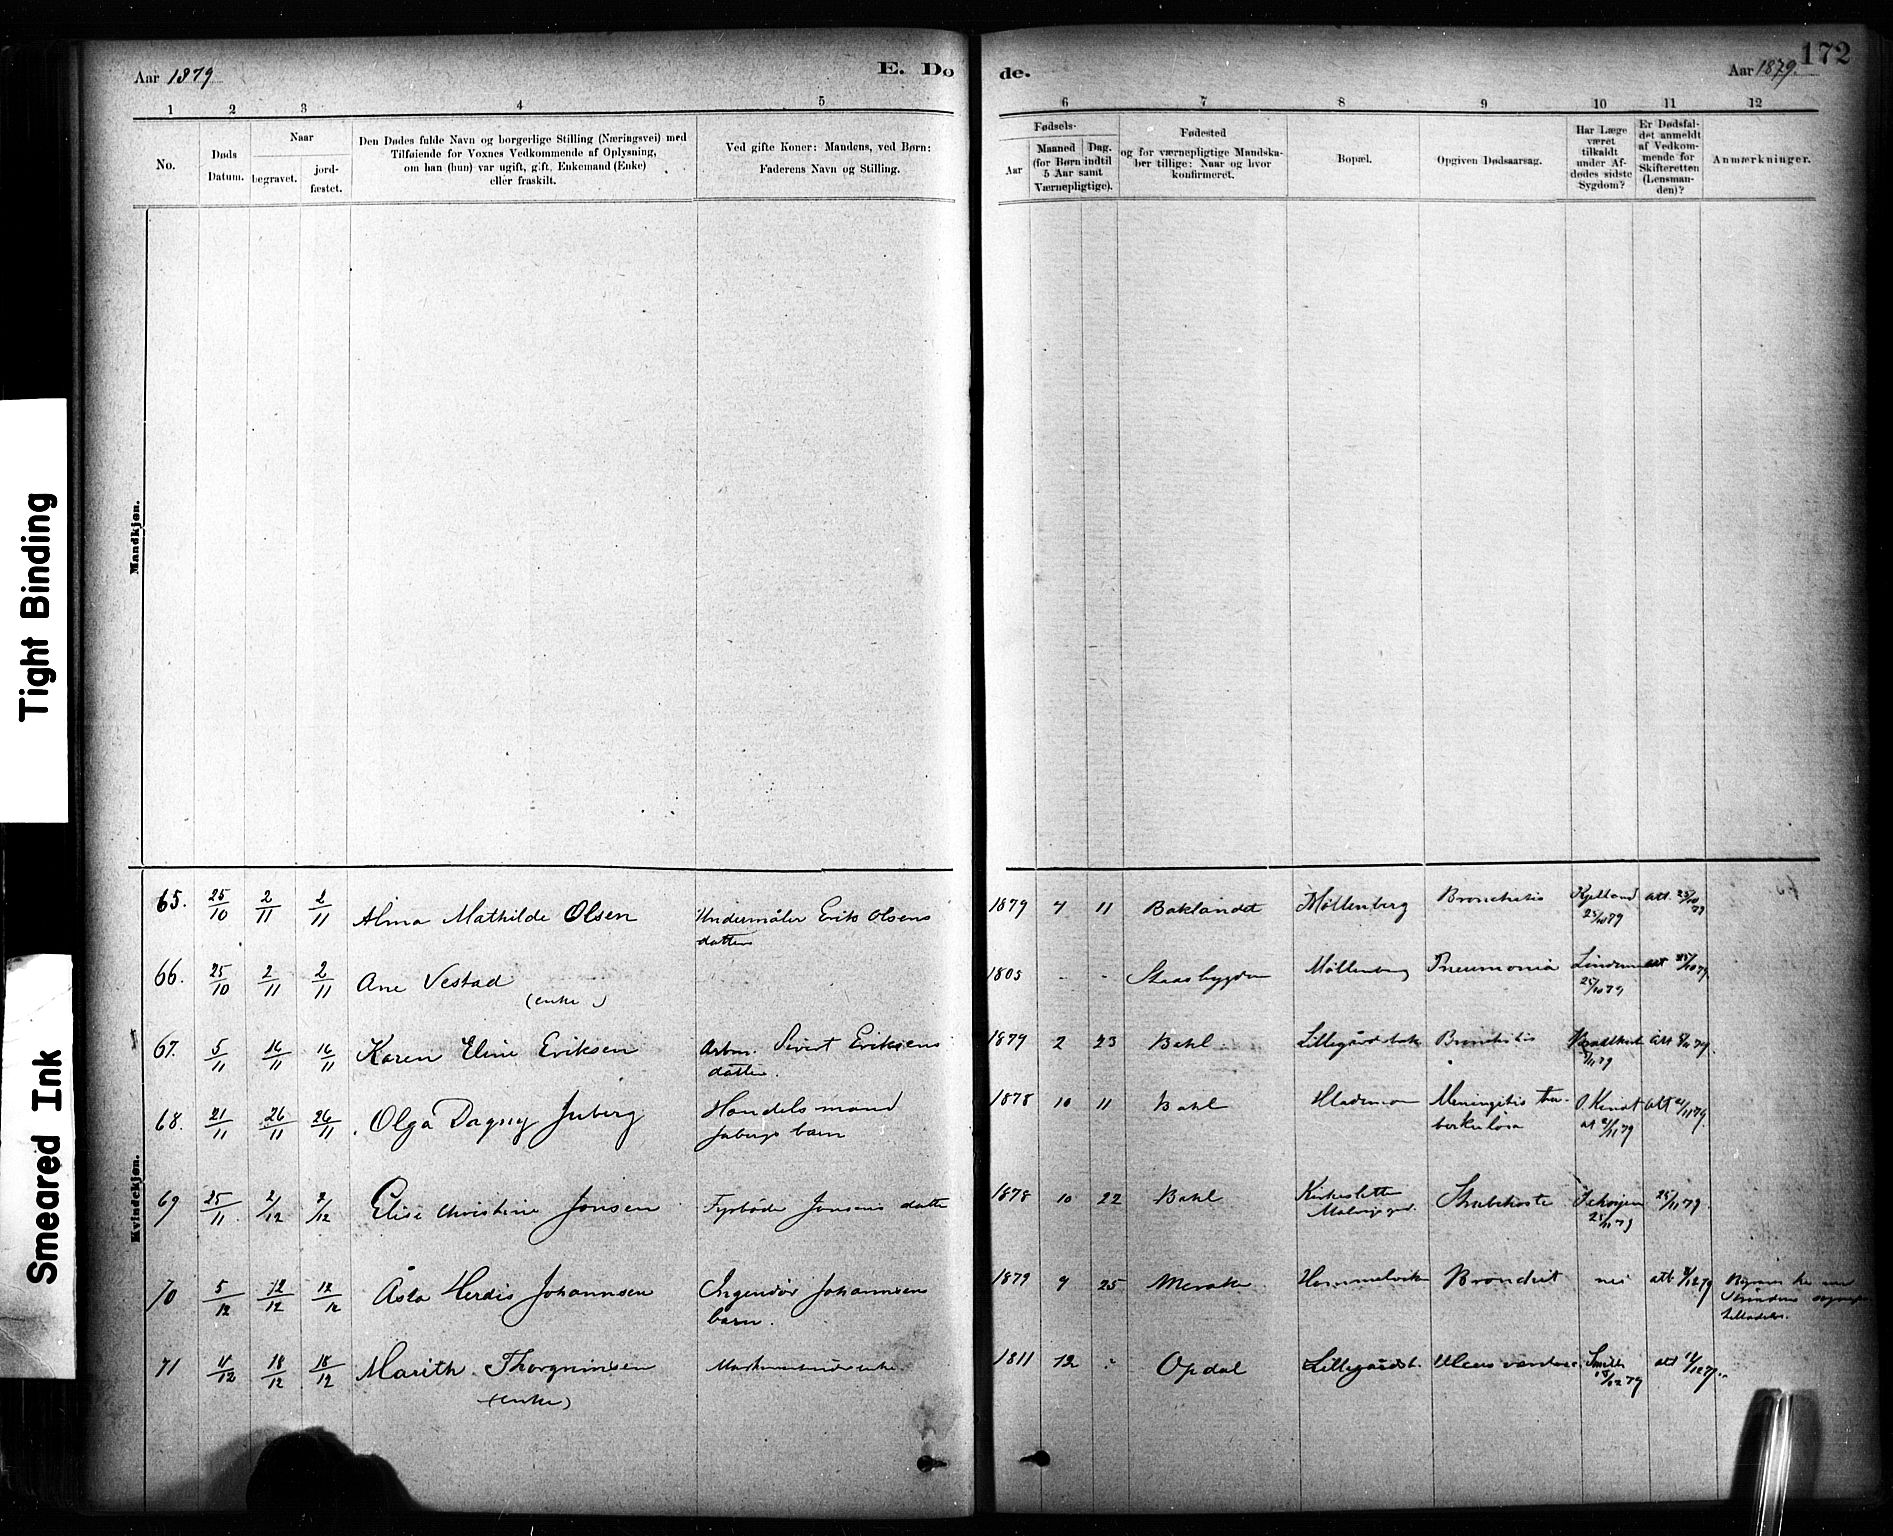 172
Aar 1879
E. Do
de.
Aar 1879.
1 2 3 4 5
6 7 8 9 10 11 12
No.
Døds
Datum.
Naar
begravet.
jord-
fæstet.
Den Dødes fulde Navn og borgerlige Stilling (Næringsvei) med
Tilføiende for Voxnes Vedkommende af Oplysning,
om han (hun) var ugift, gift, Enkemand (Enke)
eller fraskilt.
Ved gifte Koner: Mandens, ved Børn:
Faderens Navn og Stilling.
Fødsels-
Aar
Maaned Dag.
(for Børn indtil
5 Aar samt
Værnepligtige).
Fødested
og for værnepligtige Mandska-
ber tillige: Naar og hvor
konfirmeret.
Bopæl.
Opgiven Dødsaarsag.
Har Læge
været
tilkaldt
under Af-
dødes sidste
Sygdom?
Er Dødsfal-
det anmeldt
af Vedkom-
mende for
Skifteretten
(Lensman-
den)?
Anmærkninger.
Mandkjøn.
Kvindekjøn.
Tight Binding
Smeared Ink
65. 25/10 2/11 2/11 Alma Mathilde Olsen Undermåler Erik Olsens
datter
1879 7 11 Baklandet Møllenberg Bronchitis Kjelland att. 25/10 79
25/10 79
66. 25/10 2/11 2/11 Ane Vestad
(enke)
1805 - - Stadsbygden Møllenberg Pneumonia att 25/10 79
25/10 79
67. 5/11 16/11 16/11 Karen Eline Eriksen Arbm. Sivert Eriksens
datter.
1879 2 23 Bakl. Lillegårdsbak Bronchitis att
68. 21/11 26/11 26/11 Olga Dagny Juberg Handelsmand
Jubergs barn
1878 10 11 Bakl Meningitis tu-
berkulosa
att 21/11 79
69 25/11. 2/12 2/12 Elise Christine Jonsen Fyrbøder Jonsens datter
1878 10 22 Bakl Kirkesletten
Strubehoste 25/11 79
25/11 79
70 5/12 12/12 12/12 Åsta Herdis Johannsen Ingeniør Johannsens
barn.
1879 9 25 Merak Hommelvik Bronchit nei att
71 11/12 18/12 18/12 Marith Thorgrimsen
(enke)
1811 12 Opdal Lillegårdsb. Smith att